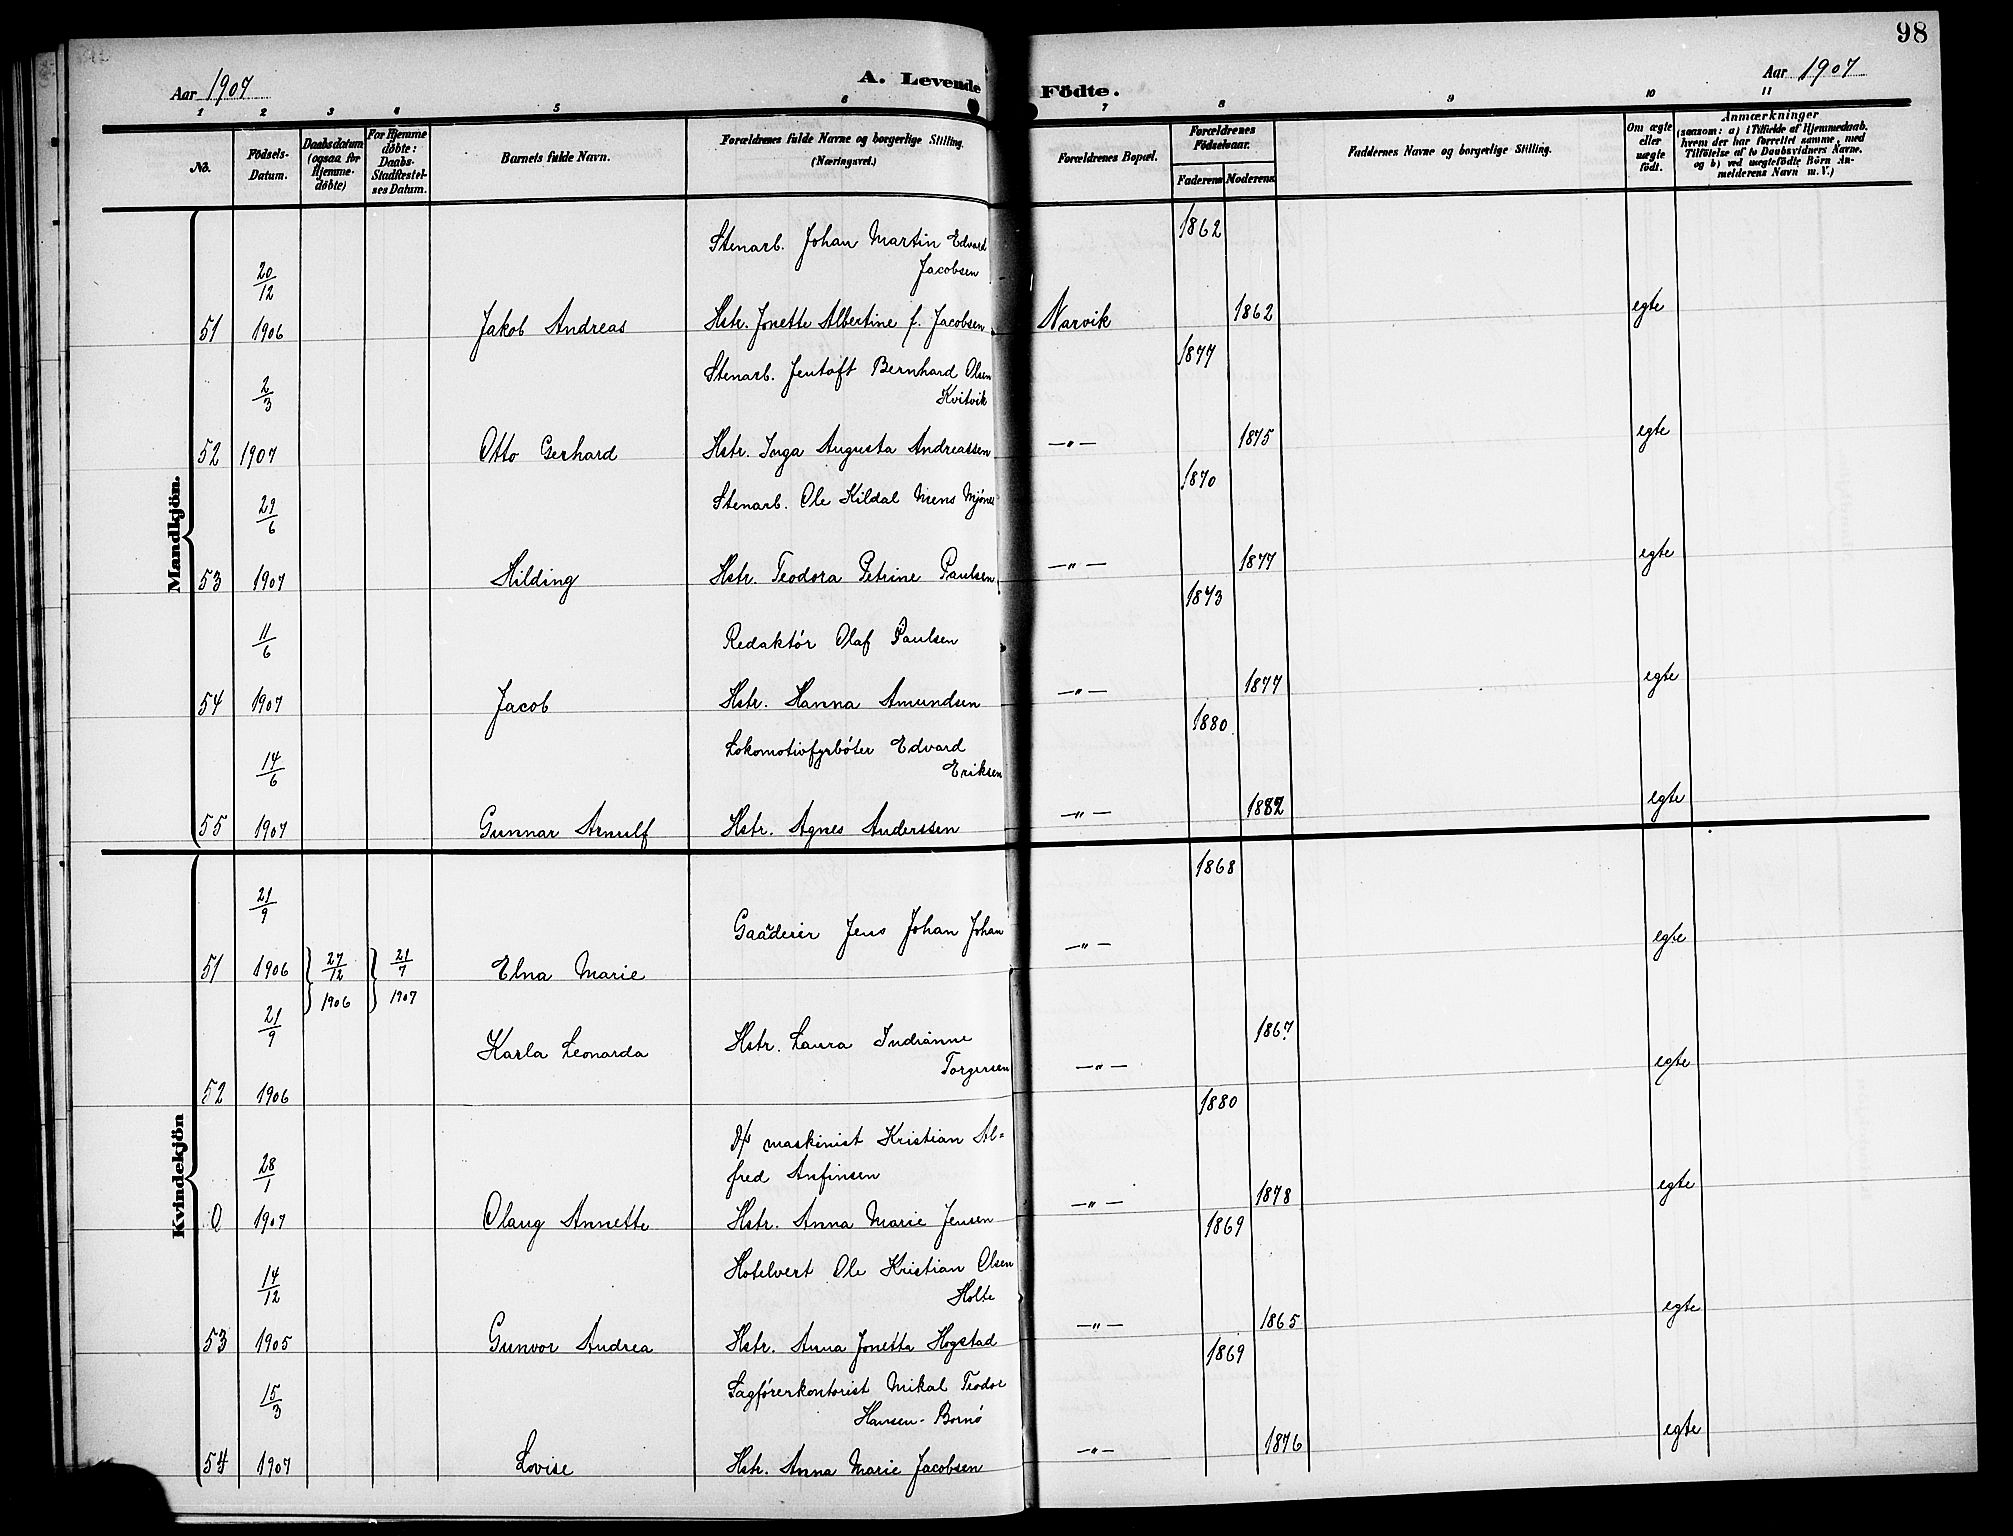 98
Aar 1907
A. Levende Födte.
Aar 1907
1 2 3 4 5 6 7 8 9 10 11
No.
Födsels-Datum.
Daabsdatum (ogsaa for Hjemme-døbte)
For Hjemme døbte: Daabs-Stadfæstel-ses Datum.
Barnets fulde Navn.
Forældrenes fulde Navne og borgerlige Stilling. (Næringsvei.)
Forældrenes Bopæl.
Forældrenes Födselsaar.
Faderens Moderens
Faddernes Navne og borgerlige Stilling.
Om ægte eller uægte födt.
Anmærkninger
(saasom: a) i Tilfælde af Hjemmedaab.
hvem der har forrettet samme, med
Tilföielse af to Daabsvidners Navne.
og b) ved uægtefödte Börn An-
melderens Navn m. V.)
Mandkjön.
Stenarb. Johan Martin Edvard 1862
20/12 Jacobsen
51 1906 Jakob Andreas Hstr. Jonette Albertine f. Jacobsen Narvik 1862 egte
Stenarb. Jentoft Bernhard Olsen 1877
2/3 Kvitvik
52 1907 Otto Gerhard Hstr. Inga Augusta Andreassen —"— 1875 egte
29/6 Stenarb. Ole Kildal Mens Mjönes 1870
53 1907 Hilding Hstr. Teodora Petrine Paulsen —"— 1877 egte
11/6 Redaktör Olaf Paulsen 1873
54 1907 Jacob Hstr. Hanna Amundsen —"— 1877 egte
Lokomotivfyrböter Edvard 1880
14/6 Eriksen
55 1907 Gunnar Arnulf Hstr. Agnes Anderssen —"— 1882 egte
Kvindekjön
21/9 1868
Gaardeier Jens Johan Johan
51 1906 27/12 1906 21/7 1907 Elna Marie —"— egte
21/9 Karla Leonarda Hstr. Laura Indianne 1867
Torgersen
52 1906 —"— egte
D/s maskinist Kristian Al= 1880
28/1 fred Anfinsen
0 1907 Olaug Annette Hstr. Anna Marie Jensen —"— 1878 egte
14/12 Hotelvert Ole Kristian Olsen 1869
Holte
53 1905 Gunvor Andrea Hstr. Anna Jonetta Hogstad —"— 1865 egte
15/3 Sagförerkontorist Mikal Teodor 1869
Hansen-Bornö
54 1907 Lovise Hstr. Anna Marie Jacobsen —"— 1876 egte